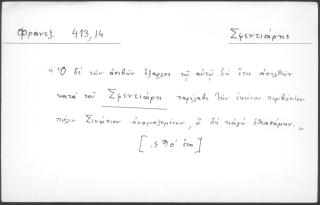 Φραντζ. 413,14 Σφεντιάρης
"Ὁ δὲ τῶν ἀσεβῶν ἔξαρχος τῷ αὐτῷ δὴ ἔτει ἀπελθὼν
κατὰ τοῦ Σφεντιάρη παρέλαβε τὴν ἐκείνου περιβόητον
πόλιν Σινώπιον ὀνομαζομένην, ὃ δὴ
[,ςϠο' ἔτει]